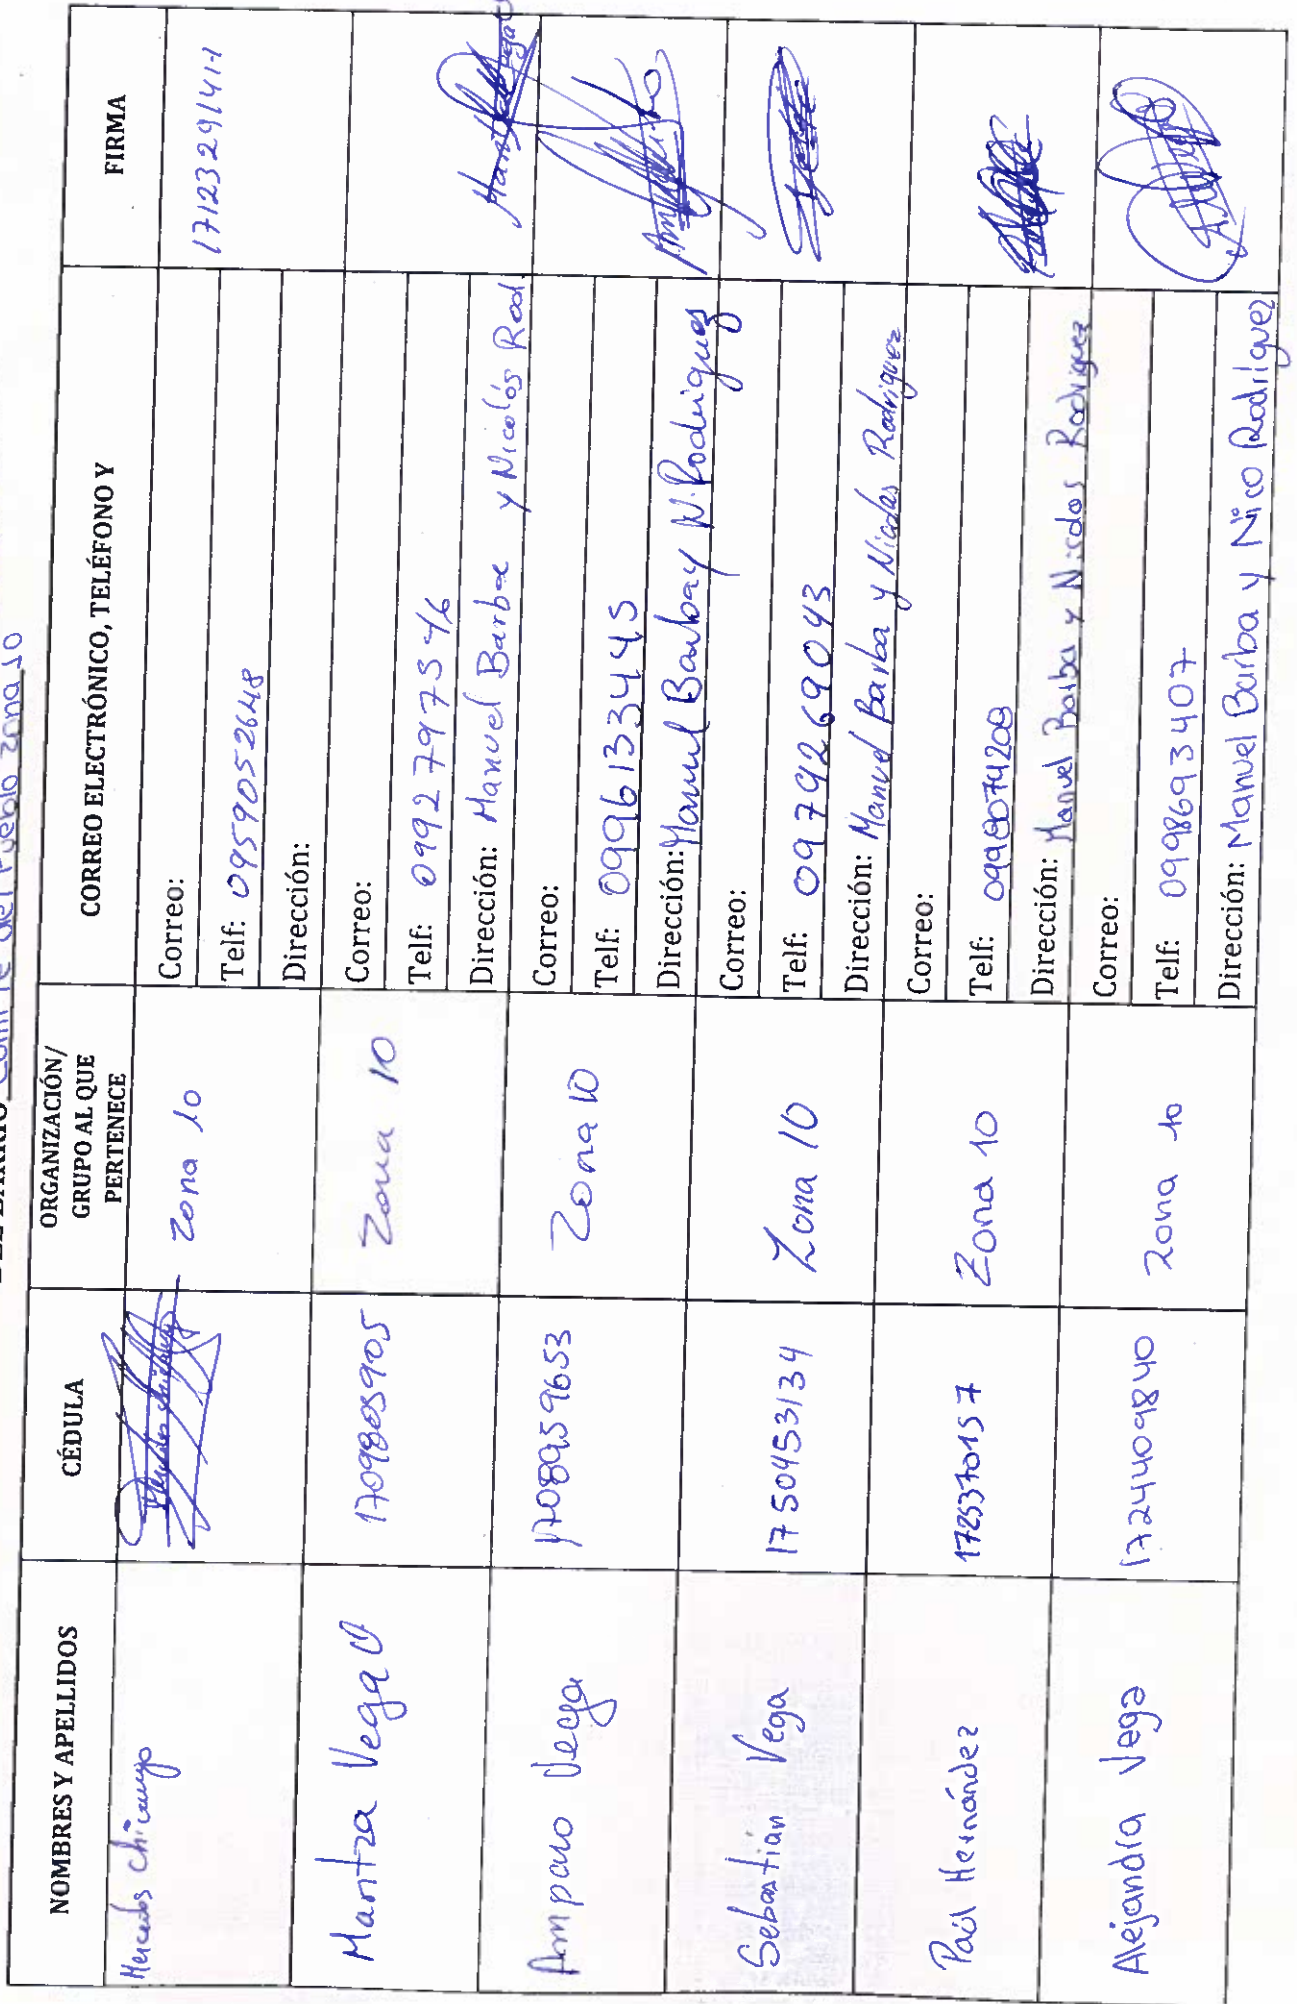 DEL BARRIO Comité del Pueblo zona 10
NOMBRES Y APELLIDOS
CÉDULA
ORGANIZACIÓN/
GRUPO AL QUE
PERTENECE
CORREO ELECTRÓNICO, TELÉFONO Y
FIRMA
Mercedes Chicango
Zona 10
Correo:
Telf: 0959052648
Dirección:
171232914-1
Maritza Vega
1709805905
Zona 10
Correo:
Telf: 0992797546
Dirección: Manuel Barba y Nicolás Rod.
Amparo Vega
1708959653
Zona 10
Correo:
Telf: 0996133445
Dirección: Manuel Barba y N. Rodriguez
Sebastian Vega
1750453134
Zona 10
Correo:
Telf: 09794269043
Dirección: Manuel Barba y Nicolas Rodriguez
Paúl Hernández
1725370157
Zona 10
Correo:
Telf: 0998074208
Dirección: Manuel Barba y Nicolas Rodriguez
Alejandra Vega
1724409840
Zona 10
Correo:
Telf: 0998693407
Dirección: Manuel Barba y Nico Rodriguez